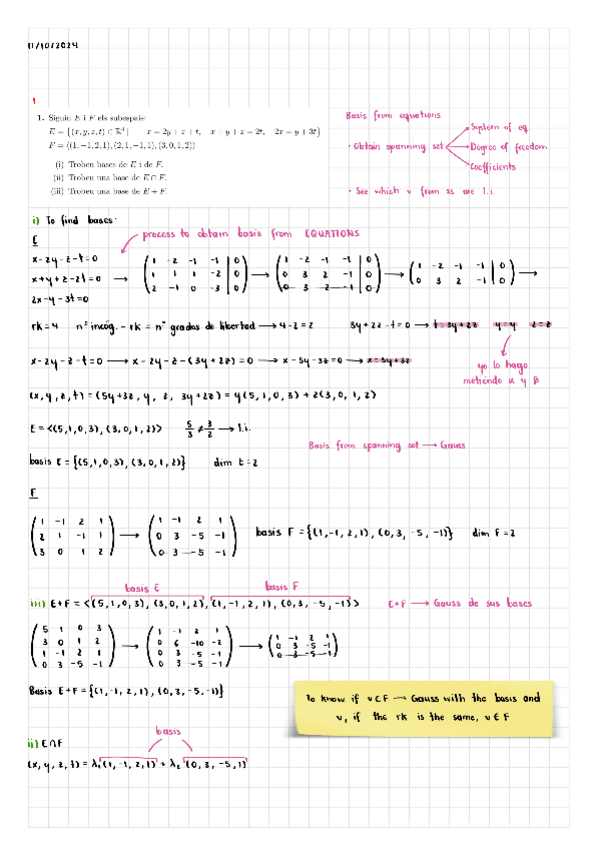 11/10/2024
1
1. Siguin E i F els subespais:
E = {(x, y, z, t) ∈ ℝ⁴ | x − 2y = z + t, x + y + z = 2t, 2x − y = 3t}
F = ⟨(1, −1, 2, 1), (2, 1, −1, 1), (3, 0, 1, 2)⟩
(i) Trobeu bases de E i de F.
(ii) Trobeu una base de E ∩ F.
(iii) Trobeu una base de E + F.
Basis from equations
· Obtain spanning set
System of eq.
Degree of freedom
Coefficients
· See which v from ss are l.i
i) To find bases:
E
process to obtain basis from EQUATIONS
x-2y-z-t=0
x+y+z-2t=0 →
2x-y-3t=0
( 1 -2 -1 -1 | 0 ) → ( 1 -2 -1 -1 | 0 ) → ( 1 -2 -1 -1 | 0 ) →
( 1 1 1 -2 | 0 ) ( 0 3 2 -1 | 0 ) ( 0 3 2 -1 | 0 )
( 2 -1 0 -3 | 0 ) ( 0 3 2 -1 | 0 )
rk=4 nº incóg. - rk = nº grados de libertad → 4-2=2 3y+2z-t=0 → t=3y+2z y=y z=z
x-2y-z-t=0 → x-2y-z-(3y+2z)=0 → x-5y-3z=0 → x=5y+3z
yo lo hago
metiendo α y β
(x,y,z,t) = (5y+3z, y, z, 3y+2z) = y(5,1,0,3) + z(3,0,1,2)
E = <(5,1,0,3), (3,0,1,2)> 5/3 ≠ 3/2 → l.i.
Basis from spanning set → Gauss
basis E = {(5,1,0,3), (3,0,1,2)} dim E=2
F
( 1 -1 2 1 ) → ( 1 -1 2 1 )
( 2 1 -1 1 ) ( 0 3 -5 -1 ) basis F = {(1,-1,2,1), (0,3,-5,-1)} dim F=2
( 3 0 1 2 ) ( 0 3 -5 -1 )
basis E basis F
iii) E+F = <(5,1,0,3), (3,0,1,2), (1,-1,2,1), (0,3,-5,-1)> E+F → Gauss de sus bases
( 5 1 0 3 ) → ( 1 -1 2 1 ) → ( 1 -1 2 1 )
( 3 0 1 2 ) ( 0 6 -10 -2 ) ( 0 3 -5 -1 )
( 1 -1 2 1 ) ( 0 3 -5 -1 ) ( 0 3 -5 -1 )
( 0 3 -5 -1 ) ( 0 3 -5 -1 )
Basis E+F = {(1,-1,2,1), (0,3,-5,-1)}
To know if v ∈ F → Gauss with the basis and
v, if the rk is the same, v ∈ F
basis
ii) E∩F
(x,y,z,t) = λ₁(1,-1,2,1) + λ₂(0,3,-5,1)